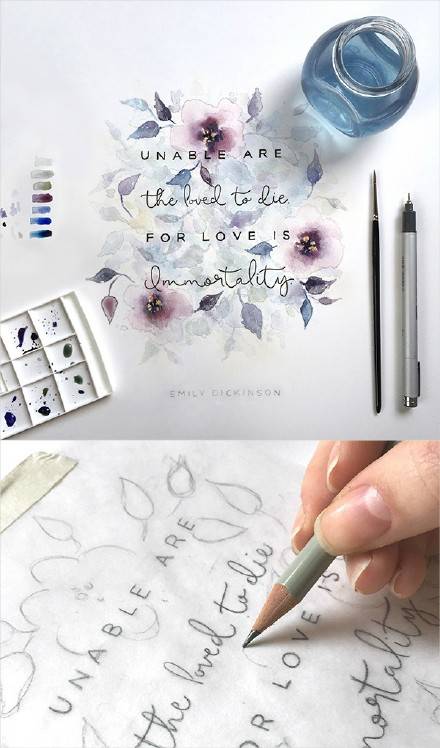 UNABLE ARE
the loved to die.
FOR LOVE IS
Immortality.
EMILY DICKINSON
UNABLE ARE
the loved to die
OR LOVE IS
mortality